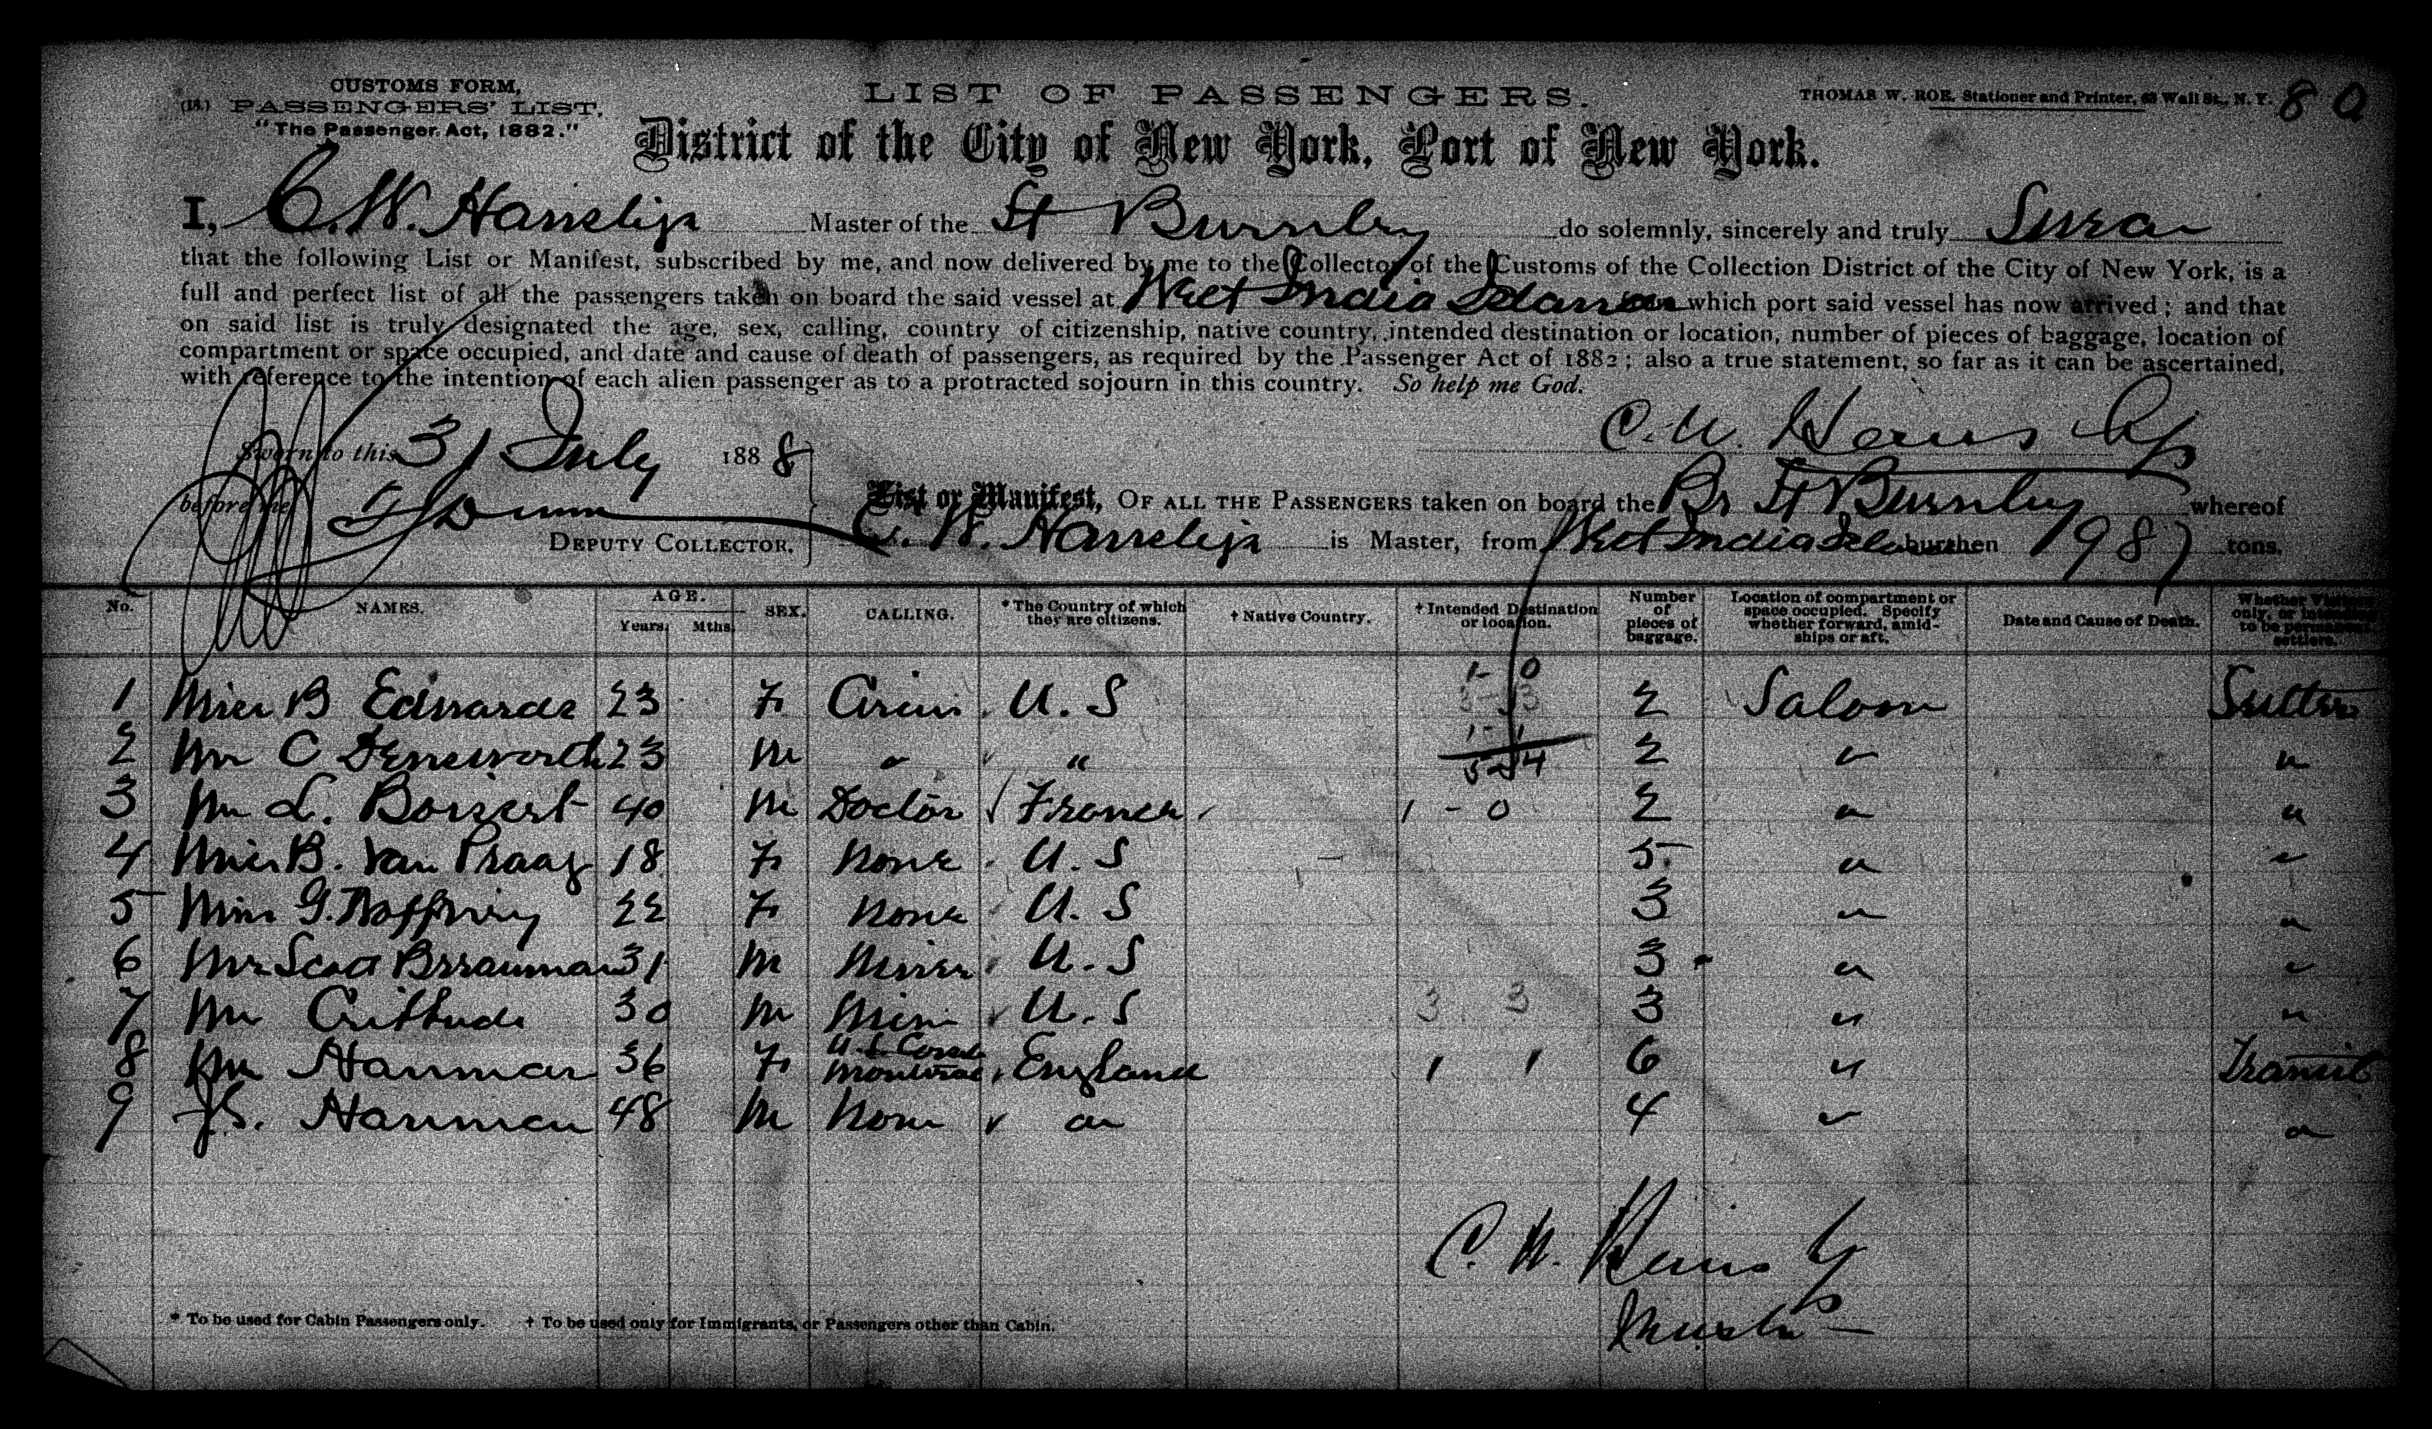 CUSTOMS FORM,
(18.) PASSENGERS' LIST.
"The Passenger Act, 1882."
LIST OF PASSENGERS.
THOMAS W. ROE, Stationer and Printer, 63 Wall St., N. Y.
80
District of the City of New York, Port of New York.
I, C. W. Master of the St Burnley do solemnly, sincerely and truly Swear
that the following List or Manifest, subscribed by me, and now delivered by me to the Collector of the Customs of the Collection District of the City of New York, is a
full and perfect list of all the passengers taken on board the said vessel at West India Islands which port said vessel has now arrived; and that
on said list is truly designated the age, sex, calling, country of citizenship, native country, intended destination or location, number of pieces of baggage, location of
compartment or space occupied, and date and cause of death of passengers, as required by the Passenger Act of 1882; also a true statement, so far as it can be ascertained,
with reference to the intention of each alien passenger as to a protracted sojourn in this country. So help me God.
Sworn to this 31 July 1888
before me Dunn
DEPUTY COLLECTOR.
List or Manifest, OF ALL THE PASSENGERS taken on board the Br St Burnley whereof
C. W. is Master, from West India burthen 1987 tons.
No. NAMES. AGE. Years. Mths. SEX. CALLING. * The Country of which they are citizens. † Native Country. † Intended Destination or location. Number of pieces of baggage. Location of compartment or space occupied. Specify whether forward, amidships or aft. Date and Cause of Death.
1 Miss B Edwards 23 F U.S 1-0 2 Saloon
2 Mr C 23 M " " 5-4 2 " "
3 Mr L. 40 M Doctor France 1-0 2 " "
4 Miss B. Van Praag 18 F None U.S 5 " "
5 Miss G. 22 F None U.S 3 " "
6 Mr Scott 31 M U.S 3 " "
7 Mr 30 M U.S 3 3 3 " "
8 Hannan 36 F England 1 1 6 " Transit
9 Hannan 48 M None " 4 " "
* To be used for Cabin Passengers only. † To be used only for Immigrants, or Passengers other than Cabin.
Master